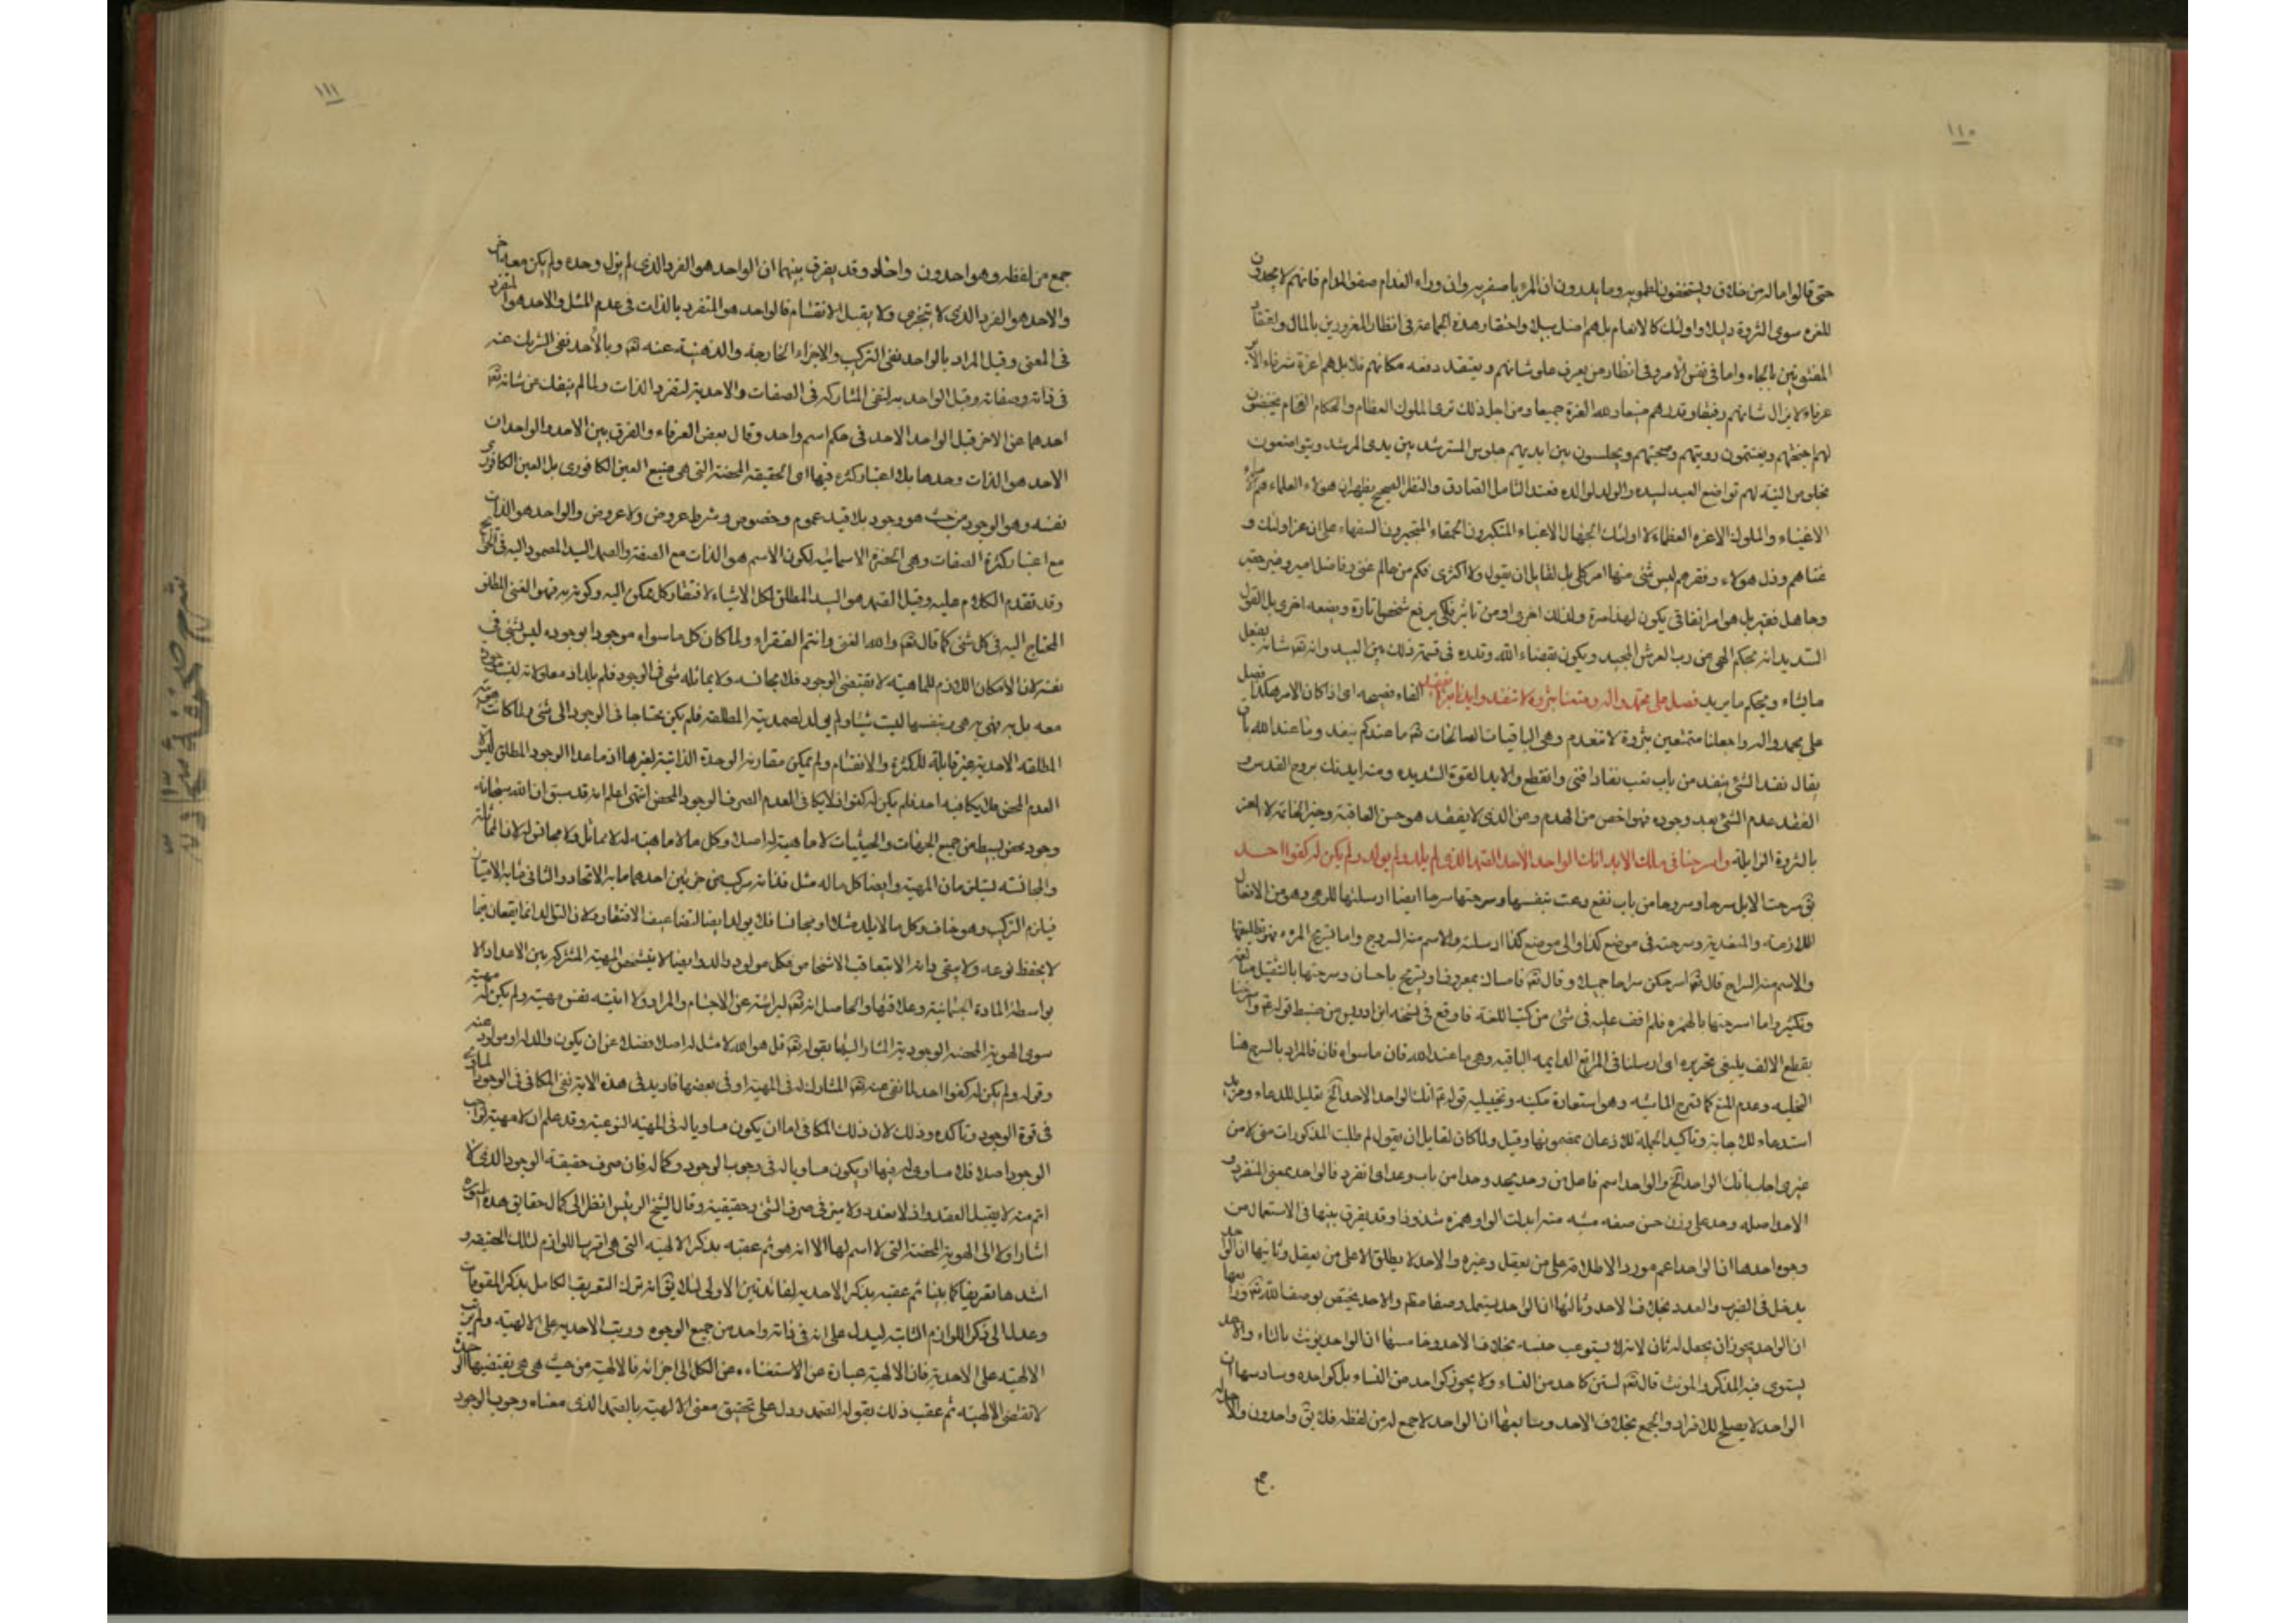 ١١٠
حتى قالوا ماله من خلاق ويستخفون وما يدرون ان المرء باصغريه وان وراء الفدام صفو المدام فانهم لا يجدون
للعزة سوى الثروة دليلا واولئك كالانعام بل هم اضل سبيلا واحتقار هذه الجماعة فى انظار المغرورين بالمال واعتقاد
المفتونين بالجاه واما فى نفس الأمر وفى انظار من يعرف علو شانهم ويعتقد رفعة مكانهم فلا بل هم اعزة شرفاء
عرفاء لا يزال شانهم رفيعا وقدرهم منيعا ولله العزة جميعا ومن اجل ذلك ترى الملوك العظام والحكام الفخام يخفضون
لهم اجنحتهم ويغتنمون رويتهم وصحبتهم ويجلسون بين ايديهم جلوس المسترشد بين يدى المرشد ويتواضعون
بخلوص النية لهم تواضع العبد لسيده والولد لوالده فعند التامل الصادق والنظر الصحيح يظهر ان هولاء العلماء هم
الاغنياء والملوك الاعزه العظماء لا اولئك الجهال الاغبياء المتكبرون الحمقاء المتجبرون السفهاء على ان عز اولئك و
غناهم وذل هولاء وفقرهم ليس شئ منها امر كلى بل لقايل ان يقول ولا اكثرى فكم من عالم غنى وفاضل امير وخير حقير
وجاهل فقير بل هو امر اتفاقى يكون لهذا مرة ولذلك اخرى او من تاثير فلكى يرفع شخصا تارة ويضعه اخرى بل القول
السديد انه بحكم الهى من رب العرش المجيد ويكون بقضاء الله وقدره فى قسمة ذلك بين العبيد وانه تعه شانه يفعل
ما يشاء ويحكم ما يريد فصل على محمد واله ومتعنا بثروة لا تنفد وايدنا بعز لا يفقد الفاء فصيحه اى اذا كان الامر هكذا فصل
على محمد واله واجعلنا متمتعين بثروة لا تنعدم وهى الباقيات الصالحات تعه ما عندكم ينفد وما عند الله باق
يقال نفد الشئ ينفد من باب تعب نفادا فنى وانقطع والايد القوة الشديده ومنه ايدتك بروح القدس و
الفقد عدم الشئ بعد وجوده فهو اخص من العدم ومن الذى لا يفقد هو حسن العاقبة وخير الخاتمة لا العز
بالثروة الزايلة واسرحنا فى ملك الابد انك الواحد الاحد الصمد الذى لم يلد ولم يولد ولم يكن له كفوا احد
يق سرحت الابل سرحا وسروحا من باب نفع رعت بنفسها وسرحتها سرحا ايضا ارسلتها للرعى وهو من الافعال
اللازمة والمتعدية وسرحته فى موضع كذا والى موضع كذا ارسلته والاسم منه السروح واما تسريح المرءة فهو تطليقها
والاسم منه السراح قال تعه اسرحكن سراحا جميلا وقال تعه فامساك بمعروف او تسريح باحسان وسرحتها بالتثقيل مبالغة
وتكثير واما اسرحتها بالهمزه فلم اقف عليه فى شئ من كتب اللغة فما وقع فى نسخة ابن ادريس من ضبط قوله ع واسرحنا
بقطع الالف ينبغى تحريره اى ارسلنا فى المراتع الدايمه الباقيه وهى ما عند الله فان ما سواه فان فالمراد بالسرح هنا
التخليه وعدم المنع كما تسرح الماشيه وهو استعارة مكنيه وتخييليه قوله ع انك الواحد الاحد الخ تعليل للدعاء ومزيد
استدعاء للاجابة وتأكيد الجملة للاذعان بمضمونها وقيل ولما كان لقايل ان يقول لم طلبت المذكورات منى لا من
غيرى اجاب بانك الواحد الخ والواحد اسم فاعل من وحد يحد وحدا من باب وعد اى انفرد فالواحد بمعنى المنفرد و
الاحد اصله وحد على وزن حسن صفه مشبه منه ابدلت الواو همزه شذوذا وقد يفرق بينها فى الاستعمال من
وجوه احدها ان الواحد اعم مورد الاطلاقه على من يعقل وغيره والاحد لا يطلق الا على من يعقل وثانيها ان الواحد
يدخل فى الضرب والعدد بخلاف الاحد وثالثها ان الواحد يستعمل وصفا مطم والاحد يختص بوصف الله تعه ورابعها
ان الواحد يجوز ان يجعل له ثان لانه لا يستوعب جنسه بخلاف الاحد وخامسها ان الواحد يونث بالتاء والاحد
يستوى فيه المذكر والمونث قال تعه لستن كاحد من النساء ولا يجوز كواحد من النساء بل كواحده وسادسها ان
الواحد لا يصلح للافراد والجمع بخلاف الاحد وسابعها ان الواحد لا جمع له من لفظه فلا يق واحدون والاحد له
جمع
١١١
جمع من لفظه وهو احدون واحاد وقد يفرق بينهما ان الواحد هو الفرد الذى لم يزل وحده ولم يكن معه اخر
والاحد هو الفرد الذى لا يتجزى ولا يقبل الانقسام فالواحد هو المتفرد بالذات فى عدم المثل والاحد هو المتفرد
فى المعنى وقيل المراد بالواحد نفى التركيب والاجزاء الخارجة والذهنية عنه تعه وبالأحد نفى الشريك عنه
فى ذاته وصفاته وقيل الواحديه لنفى المشاركه فى الصفات والاحدية لتفرد الذات ولما لم ينفك عن شانه تعه
احدهما عن الاخر قيل الواحد الاحد فى حكم اسم واحد وقال بعض العرفاء والفرق بين الاحد والواحد ان
الاحد هو الذات وحدها بلا اعتبار كثره فيها اى الحقيقه المحضة التى هى منبع العين الكافورى بل العين الكافورى
نفسه وهو الوجود من حيث هو وجود بلا قيد عموم وخصوص وشرط عروض ولا عروض والواحد هو الذات
مع اعتبار كثرة الصفات وهى الحضرة الاسمائيه لكون الاسم هو الذات مع الصفة والصمد السيد المصمود اليه فى الحوائج
وقد تقدم الكلام عليه وقيل الصمد هو السيد المطلق لكل الاشياء لافتقار كل ممكن اليه وكونه به فهو الغنى المطلق
المحتاج اليه فى كل شئ كما قال تعه والله الغنى وانتم الفقراء ولما كان كل ما سواه موجودا بوجوده ليس بشئ فى
نفسه لان الامكان اللازم للماهية لا يقتضى الوجود فلا يجانسه ولا يماثله شى فى الوجود فلم يلد اذ معلولاته ليست موجودة
معه بل به فهى به هى وبنفسها ليست شيئا ولم يولد لصمديته المطلقه فلم يكن محتاجا فى الوجود الى شئ ولما كانت هويته
المطلقه الاحدية غير قابلة للكثرة والانقسام ولم يمكن مقارنة الوحدة الذاتية لغيرها اذ ما عدا الوجود المطلق ليس الا
العدم المحض فلا يكافيه احد فلم يكن له كفوا اذ لا يكافى العدم الصرف الوجود المحض انتهى اعلم انه قد سبق ان الله سبحانه
وجود محض بسيط من جميع الجهات والحيثيات لا ماهية له اصلا وكل ما لا ماهية له لا مماثل ولا مجانس له لان المماثلة
والمجانسة يستلزمان المهية وايضا كل ما له مثل فذاته مركب من جزئين احدهما ما به الاتحاد والثانى ما به الامتياز
فيلزم التركيب وهو خلف وكل ما لا يلد مثلا او مجانسا فلا يولد ايضا لتضايف الافتقار ولان التوالد انما يقع فيما
لا يحفظ نوعه ولا يبقى دائه الا بتعاقب الاشخاص فكل مولود والد وايضا لا يتشخص المهية المشتركه بين الاعداد الا
بواسطة المادة الجسمانية وعلاقتها والحاصل انه تعه لبرائته عن الاجسام والمراد ولا انيته نفس مهيته ولم يكن له مهية
سوى الهوية المحضه الوجودية المشار اليها بقوله تعه قل هو الله لا مثل له اصلا فضلا عن ان يكون والد له او مولود عنه
وقوله ولم يكن له كفوا احد لما نفى عنه تعه المشارك له فى المهية او فى بعضها فاريد فى هذه الاية نفى المكافى فى الوجود
فى قوة الوجود وتأكده وذلك لان ذلك المكافى اما ان يكون مساويا له فى المهية النوعية وقد علم ان لا مهية لواجب
الوجود اصلا فلا مساوى له فيها او يكون مساويا له فى وجوب الوجود وكماله فان صرف حقيقة الوجود الذى لا
اتم منه لا يقبل التعدد واذ لا تعدد ولا ميز فى صرف الشئ وحقيقته وقال الشيخ الرئيس انظر الى كمال حقايق هذه السورة
اشار اولا الى الهوية المحضة التى لا اسم لها الا انه هو ثم عقبه بذكر الالهيه التى هى اقرب اللوازم لتلك الحقيقه و
اشدها تعريفا كما بينا ثم عقبه بذكر الاحديه لفائدتين الاولى لئلا يق انه ترك التعريف الكامل بذكر المقومات
وعدل الى ذكر اللوازم الثانيه ليدل على انه فى ذاته واحد من جميع الوجوه ورتب الاحديه على الالهية ولم يرتب
الالهيه على الاحدية فان الالهية عبارة عن الاستغناء عن الكل الى اجزائه فالالهية من حيث هى هى يقتضيها الوحدة
لاتقتضى الالهيه ثم عقب ذلك بقوله الصمد ودل على تحقيق معنى الالهية بالصمد الذى معناه وجوب الوجود